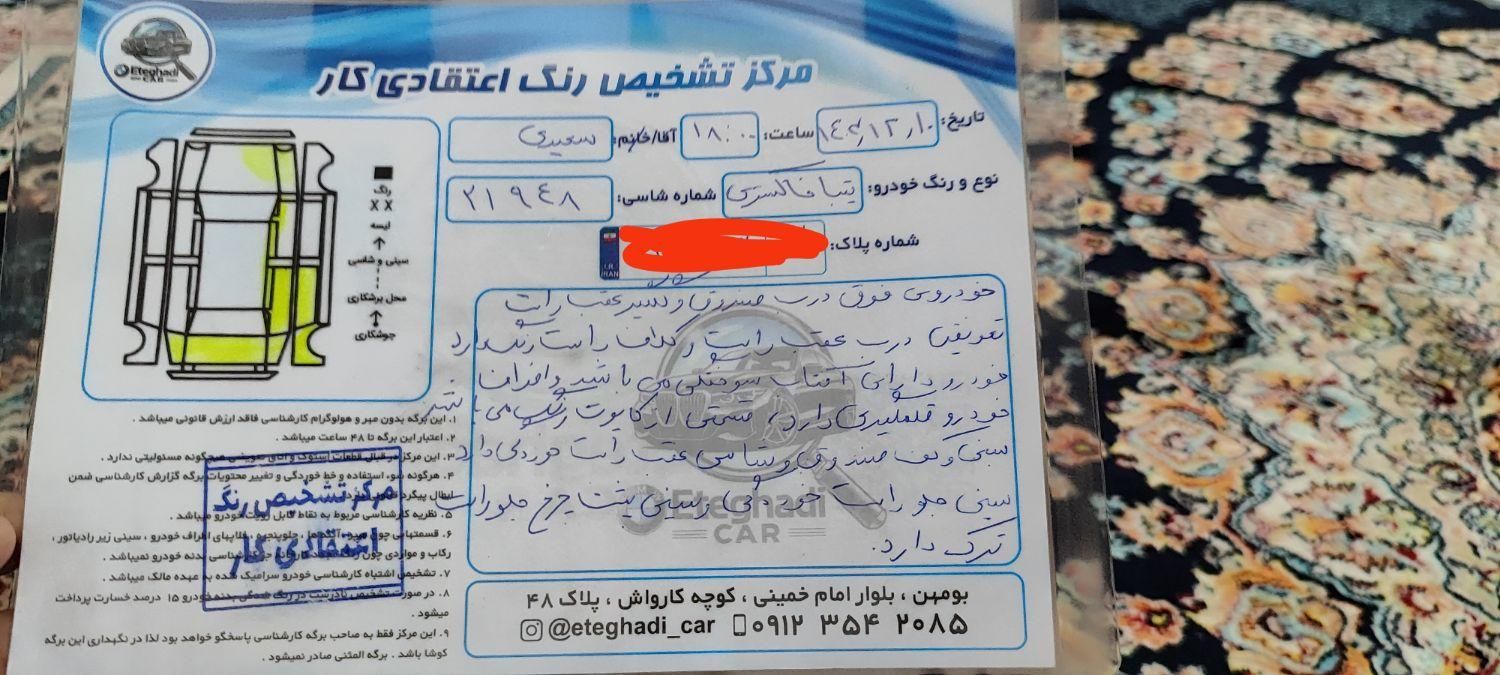 Eteghadi
CAR
مرکز تشخیص رنگ اعتقادی کار
تاریخ:
ساعت: ۱۸:۰۰
آقا/خانم: سعیدی
نوع و رنگ خودرو: تیبا خاکستری
شماره شاسی: ۲۱۹۴۸
شماره پلاک:
I.R.
IRAN
رنگ
X X
لیسه
سینی و شاسی
محل برشکاری
جوشکاری
خودروی فوق درب صندوق و گلگیر عقب راست
تعویض درب عقب راست و کلاف راست رنگ دارد
خودرو دارای آفتاب سوختگی می باشد و اطراف
خودرو قلمگیری دارد، قسمتی از کاپوت رنگ می باشد
سینی کف صندوق و شاسی عقب راست خوردگی دارد
سینی جلو راست خوردگی و سینی پشت چرخ جلو راست
ترک دارد.
Eteghadi
CAR
۱. این برگه بدون مهر و هولوگرام کارشناسی فاقد ارزش قانونی میباشد.
۲. اعتبار این برگه تا ۴۸ ساعت میباشد.
۳. این مرکز در قبال قطعات استوک و اتاق تعویضی هیچگونه مسئولیتی ندارد.
۴. هرگونه سوء استفاده و خط خوردگی و تغییر محتویات برگه گزارش کارشناسی ضمن
ابطال پیگرد
۵. نظریه کارشناسی مربوط به نقاط قابل رویت خودرو میباشد.
۶. قسمتهایی چون سپر، آینه ها، جلوپنجره، فلاپهای اطراف خودرو، سینی زیر رادیاتور،
رکاب و مواردی چون کارشناسی بدنه خودرو نمیباشد.
۷. تشخیص اشتباه کارشناسی خودرو سرامیک شده به عهده مالک میباشد.
۸. در صورت تشخیص نادرست در رنگ شدگی بدنه خودرو ۱۵ درصد خسارت پرداخت
میشود.
۹. این مرکز فقط به صاحب برگه کارشناسی پاسخگو خواهد بود لذا در نگهداری این برگه
کوشا باشد. برگه المثنی صادر نمیشود.
مرکز تشخیص رنگ
اعتقادی کار
بومهن، بلوار امام خمینی، کوچه کارواش، پلاک ۴۸
@eteghadi_car ۰۹۱۲ ۳۵۴ ۲۰۸۵